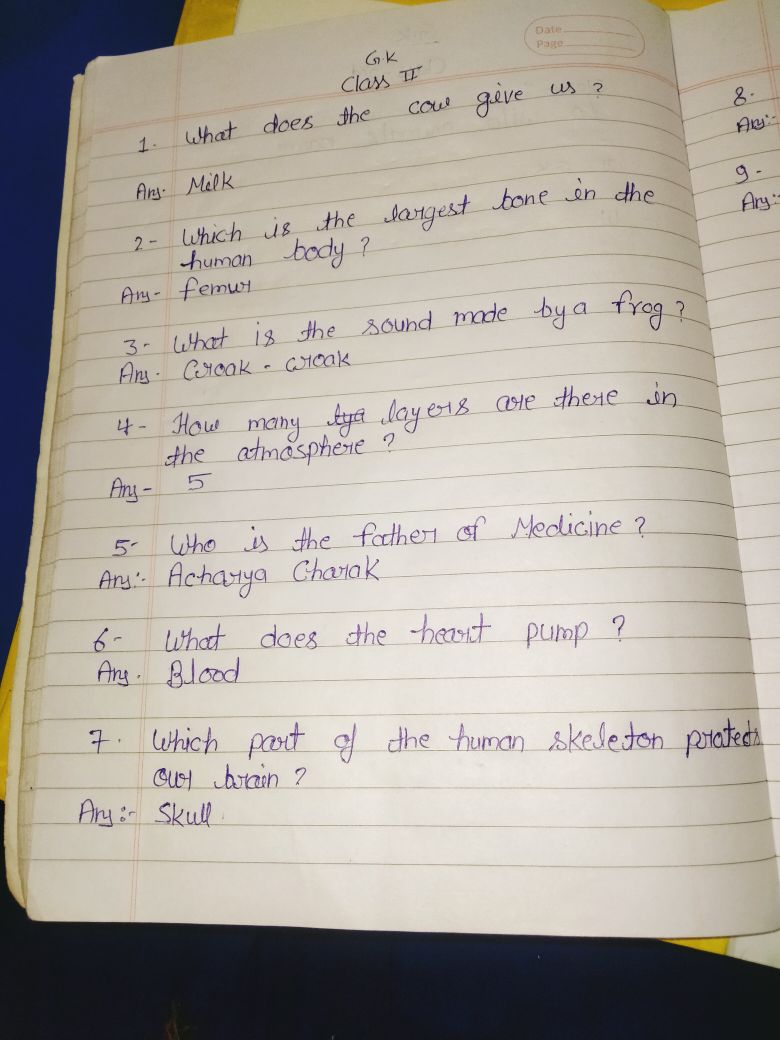 Date
Page
G.K
Class II
1. What does the cow give us ?
Ans. Milk
2- Which is the largest bone in the
human body ?
Ans- femur
3- What is the sound made by a frog ?
Ans. Croak - croak
4- How many lya layers are there in
the atmosphere ?
Ans- 5
5- Who is the father of Medicine ?
Ans:- Acharya Charak
6- What does the heart pump ?
Ans. Blood
7. Which part of the human skeleton protects
our brain ?
Ans:- Skull
8.
Ans:-
9-
Ans:-